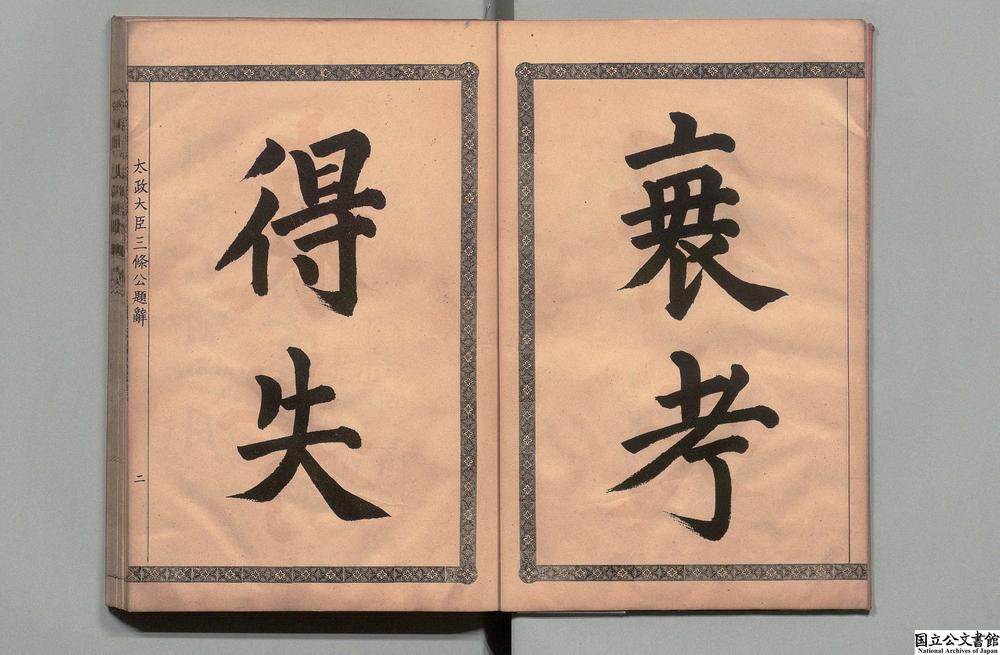 衰考
得失
太政大臣三條公題辭
二
国立公文書館
National Archives of Japan